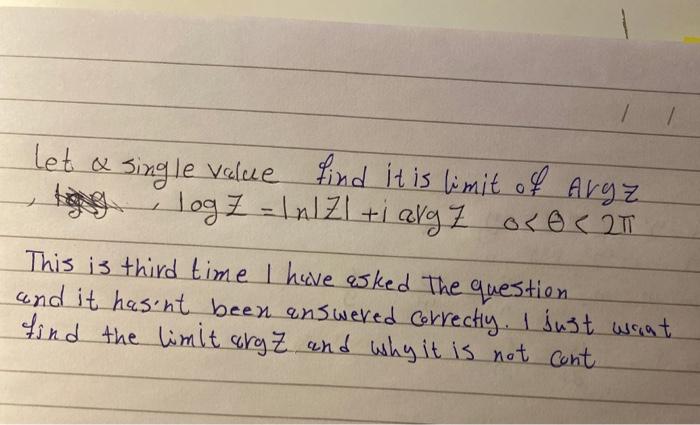 Let α single value find it is limit of Argz
, , log Z = ln|Z| + i arg Z 0<θ<2π
This is third time I have asked The question
and it has'nt been answered correctly. I Just want
find the limit argZ and why it is not Cont